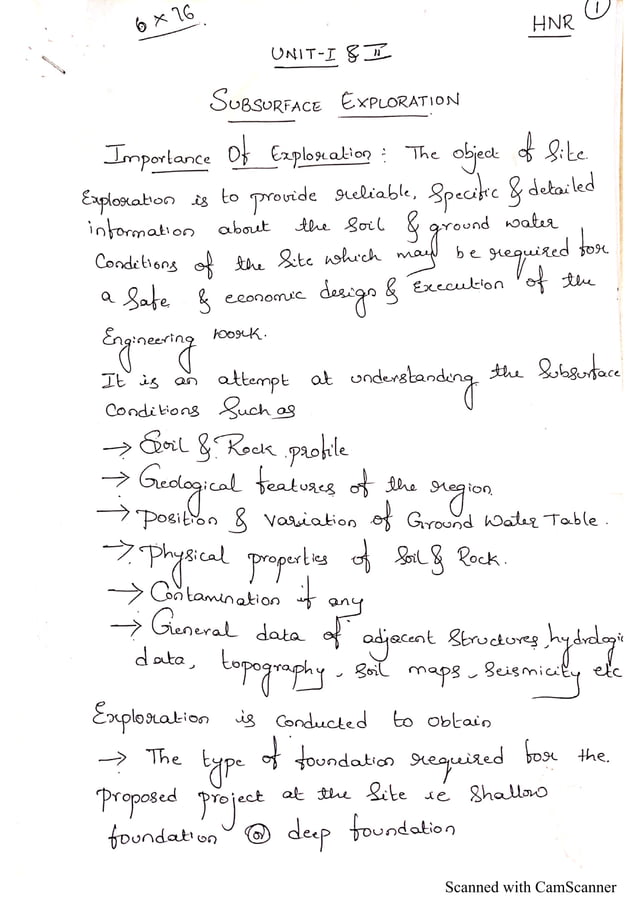 6 x 76
HNR 1
UNIT-I & II
SUBSURFACE EXPLORATION
Importance Of Exploration : The object of Site
Exploration is to provide reliable, Specific & detailed
information about the Soil & ground water
Conditions of the Site which may be required for
a Safe & economic design & Execution of the
Engineering work.
It is an attempt at understanding the Subsurface
Conditions Such as
→ Soil & Rock profile
→ Geological features of the region
→ Position & Variation of Ground Water Table.
→ Physical properties of Soil & Rock.
→ Contamination if any
→ General data of adjacent Structures, hydrologi
data, topography, Soil maps, Seismicity etc
Exploration is Conducted to Obtain
→ The type of foundation required for the.
Proposed project at the Site ie Shallow
foundation or deep foundation
Scanned with CamScanner